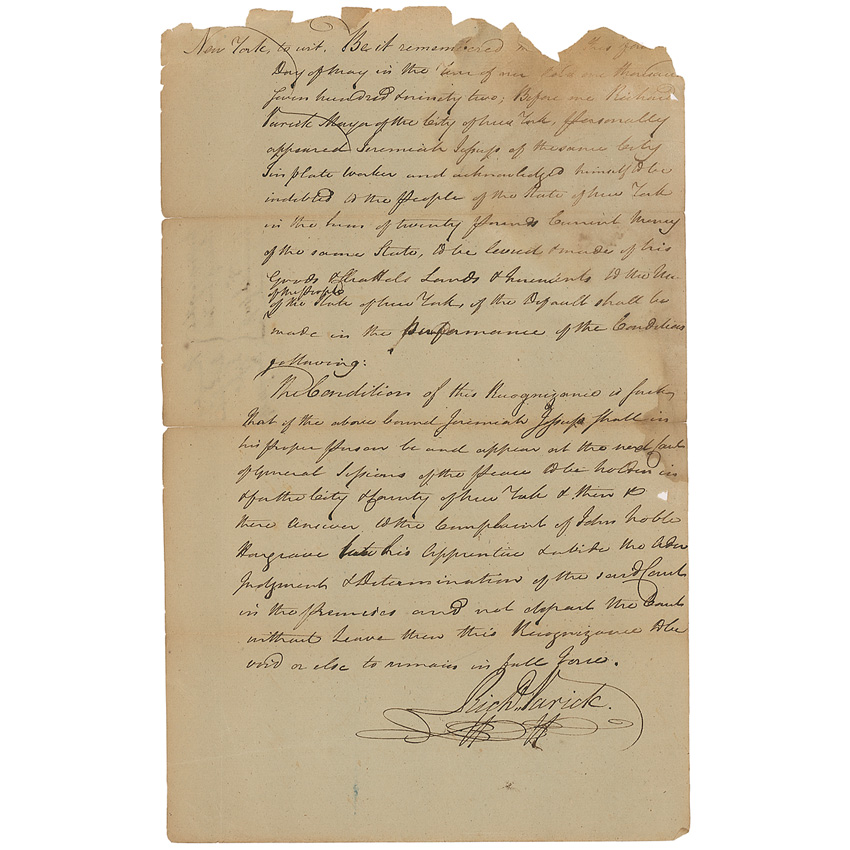 New York, to wit. Be it remembered
Day of May in the Year of our Lord one thousand
Seven hundred & ninety two; Before me Richard
Varick Mayor of the City of New York, Personally
appeared Jeremiah of the same City
Tin plate worker and acknowledged himself to be
indebted to the People of the State of New York
in the Sum of twenty Pounds Current Money
of the same State, to be levied & made of his
Goods & Chattels Lands & Tenements to the Use
of the People
of the State of New York, if the Default shall be
made in the performance of the Condition
following:
The Condition of this Recognizance is such,
that if the above bound Jeremiah shall in
his Proper Person be and appear at the next Court
of General Sessions of the Peace to be holden in
& for the City & County of New York & then &
there answer to the Complaint of John Noble
Hargrave late his Apprentice & abide the
Judgment & Determination of the said Court
in the Premises and not depart the Court
without Leave then this Recognizance to be
void or else to remain in full Force.
Richd Varick.